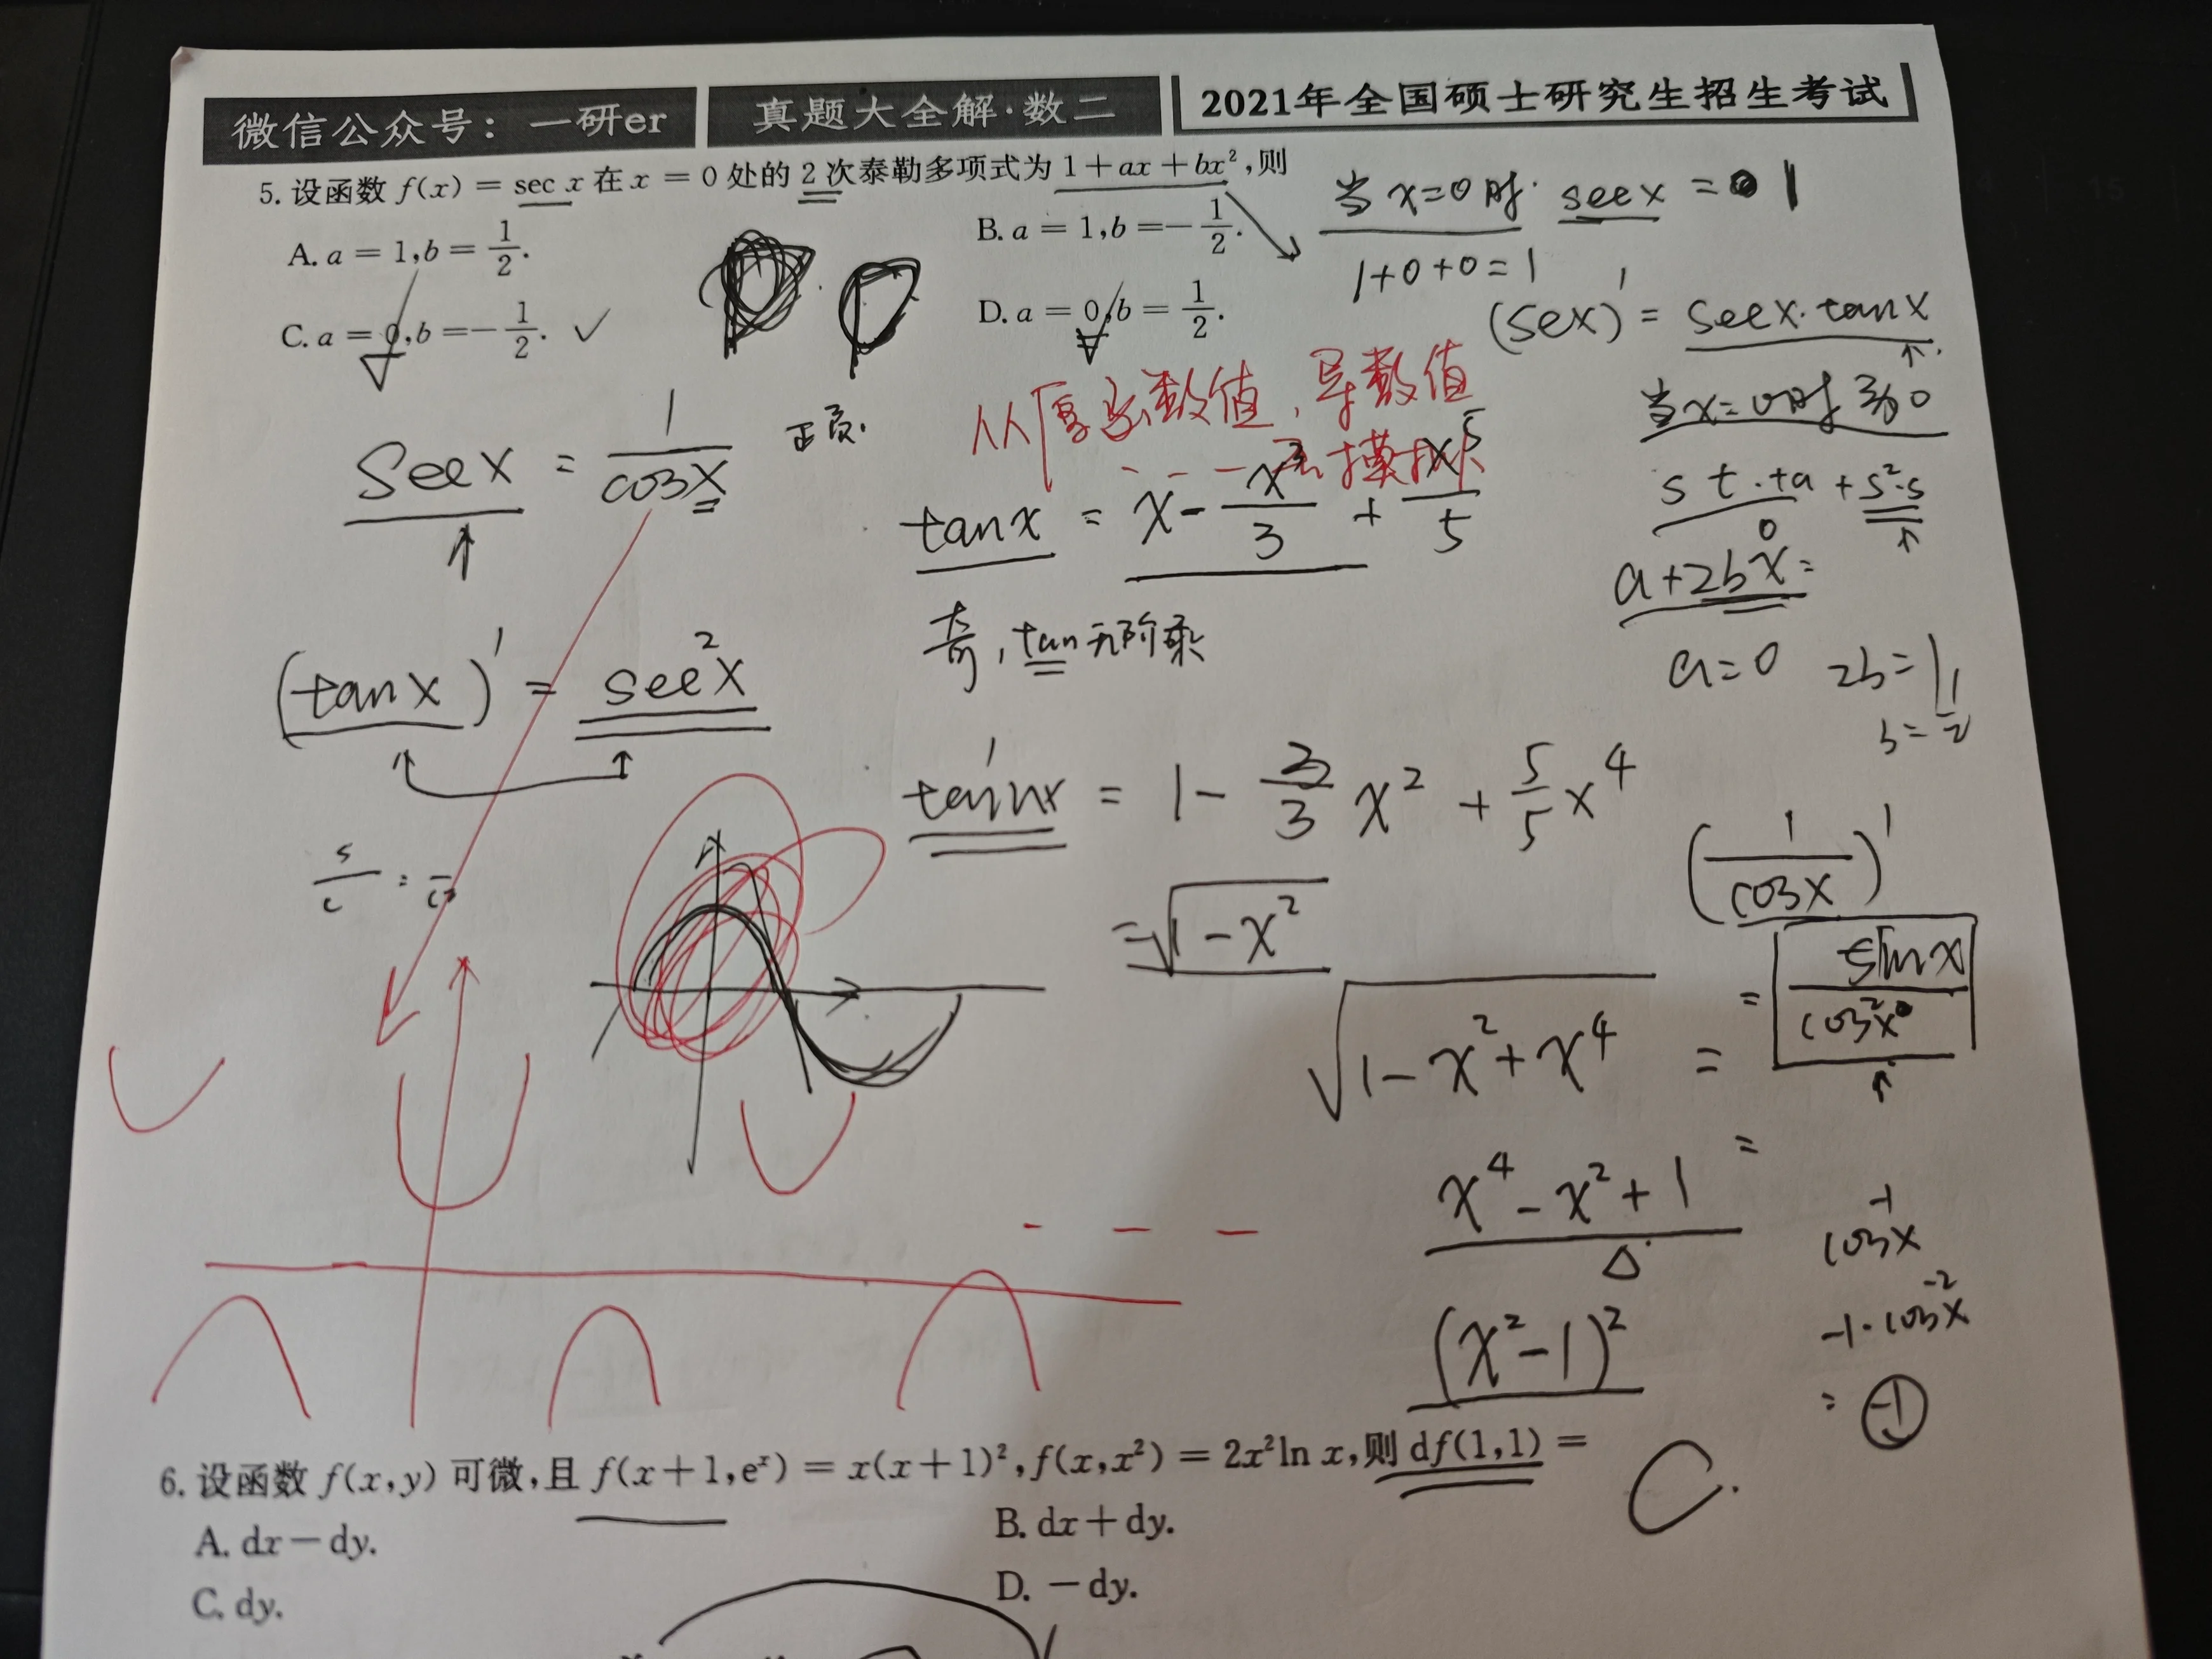 微信公众号：一研er 真题大全解·数二 2021年全国硕士研究生招生考试
5. 设函数 f(x) = sec x 在 x = 0 处的 2 次泰勒多项式为 1 + ax + bx², 则
A. a = 1, b = 1/2. B. a = 1, b = -1/2.
C. a = 0, b = -1/2. ✓ D. a = 0, b = 1/2.
当 x=0 时. secx = 1
1+0+0=1
(sex)' = secx·tanx
当x=0时 为0
s t·ta + s²·s
0
a+2bx=
a=0 2b=1
b=1/2
从原函数值, 导数值
secx = 1/cosx
tanx = x - x³/3 + x⁵/5
奇, tan无阶乘
(tanx)' = sec²x
tan'x = 1 - 3/3 x² + 5/5 x⁴
= √1-x²
√1-x²+x⁴ =
x⁴-x²+1
(x²-1)²
(1/cosx)'
= sinx/cos²x
=
cos⁻¹x
-1·cos⁻²x
= -1
6. 设函数 f(x,y) 可微, 且 f(x+1,eˣ) = x(x+1)², f(x,x²) = 2x²ln x, 则 df(1,1) =
C.
A. dx - dy. B. dx + dy.
C. dy. D. -dy.